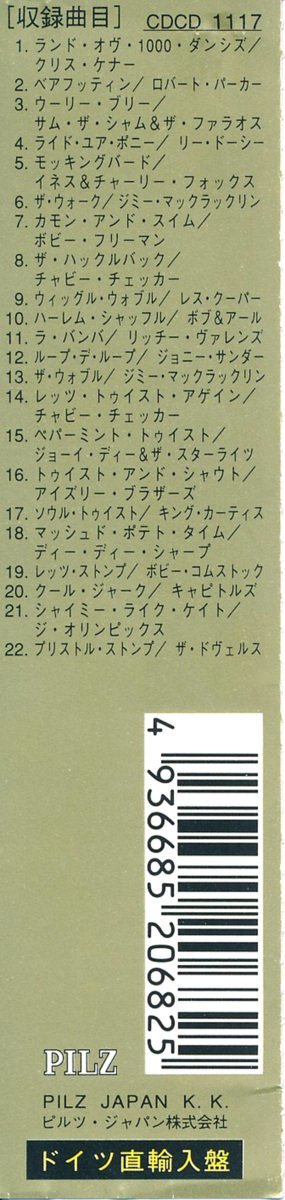 [収録曲目] CDCD 1117
1. ランド・オヴ・1000・ダンシズ/
クリス・ケナー
2. ベアフッティン/ ロバート・パーカー
3. ウーリー・ブリー/
サム・ザ・シャム&ザ・ファラオス
4. ライド・ユア・ポニー/ リー・ドーシー
5. モッキングバード/
イネス&チャーリー・フォックス
6. ザ・ウォーク/ ジミー・マックラックリン
7. カモン・アンド・スイム/
ボビー・フリーマン
8. ザ・ハックルバック/
チャビー・チェッカー
9. ウィッグル・ウォブル/ レス・クーパー
10. ハーレム・シャッフル/ ボブ&アール
11. ラ・バンバ/ リッチー・ヴァレンズ
12. ループ・デ・ループ/ ジョニー・サンダー
13. ザ・ウォブル/ ジミー・マックラックリン
14. レッツ・トゥイスト・アゲイン/
チャビー・チェッカー
15. ペパーミント・トゥイスト/
ジョーイ・ディー&ザ・スターライツ
16. トゥイスト・アンド・シャウト/
アイズリー・ブラザーズ
17. ソウル・トゥイスト/ キング・カーティス
18. マッシュド・ポテト・タイム/
ディー・ディー・シャープ
19. レッツ・ストンプ/ ボビー・コムストック
20. クール・ジャーク/ キャピトルズ
21. シャイミー・ライク・ケイト/
ジ・オリンピックス
22. ブリストル・ストンプ/ ザ・ドヴェルス
4 936685 206825
PILZ
PILZ JAPAN K. K.
ピルツ・ジャパン株式会社
ドイツ直輸入盤